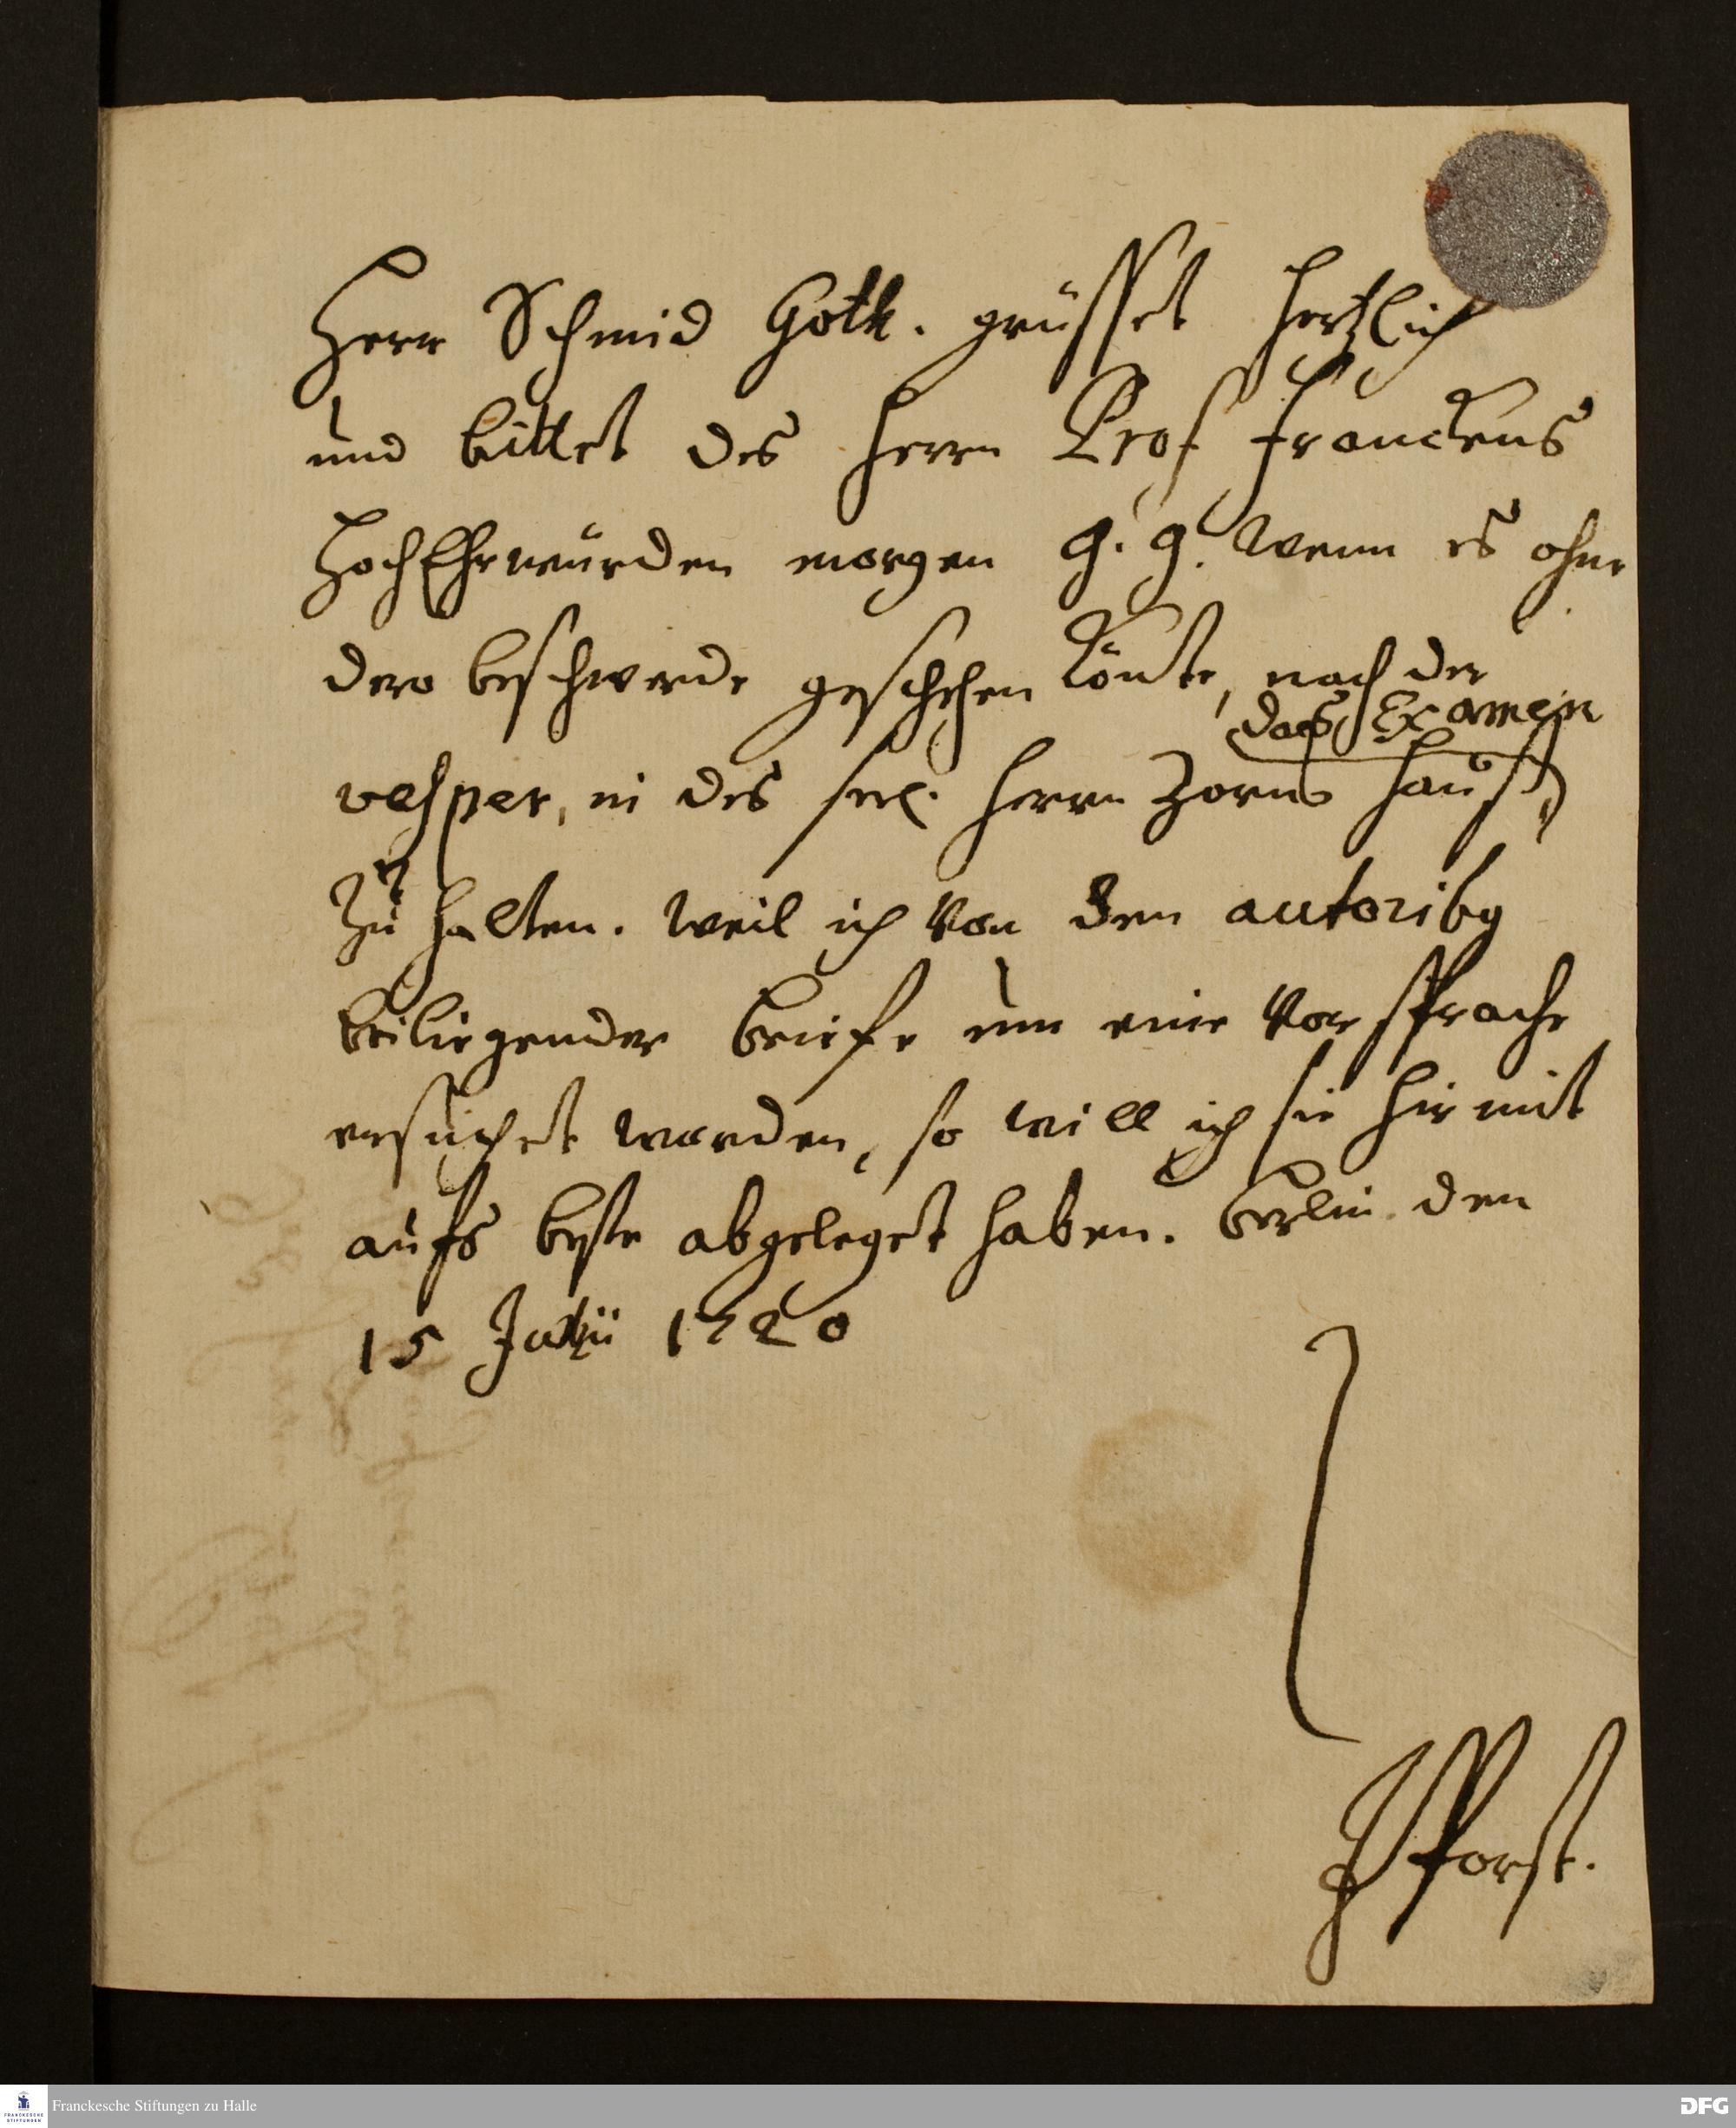 Herr Schmid Goth. grüsset hertzlich
und bittet des Herrn Prof franckens
HochEhrwürden morgen g. g. wenn es ohne
dero beschwerde geschehen könte, nach der
das Examen
vesper, in des seel. Herrn Zorns Hauß
zu halten. weil ich von den autoribg
beiliegender briefe um eine vorsprache
ersuchet worden, so will ich sie hirmit
aufs beste abgeleget haben. berlin den
15 1720
Pforst.
Franckesche Stiftungen zu Halle
FRANCKESCHE
STIFTUNGEN
DFG